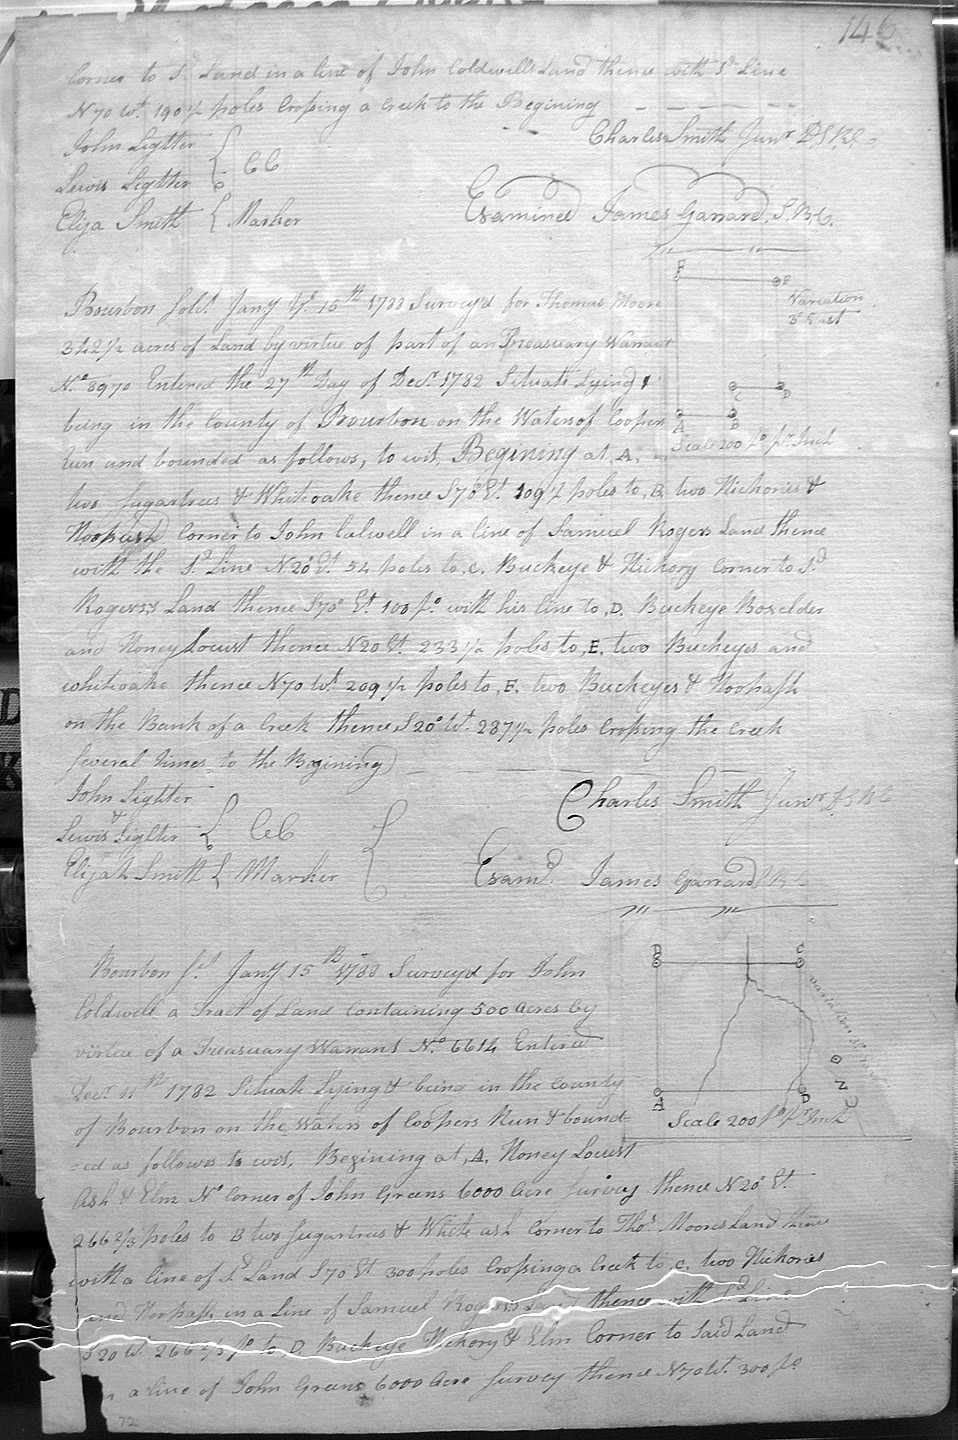 146
Corner to Sd. Land in a line of John Coldwells Land thence with Sd Line
N 70 Wt. 190 1/2 poles Crossing a Creek to the Begining
Charles Smith Junr D S B C
John Lighter
Lewis Lighter } CC
Elija Smith { Marker
Examined James Garrard, S. B. C.
F E
Variation
3° East
C D
A B
Scale 200 po pr Inch
Bourbon Jany 15th 1783 Survey'd for Thomas Moore
342 1/2 acres of Land by virtue of part of an Treasuary Warrant
No 8970 Entered the 27th Day of Decr 1782 Situate Lying &
being in the County of Bourbon on the Waters of Coopers
Run and bounded as follows, to wit, Begining at A.
two Sugartrees & Whiteoake thence S 70° Et. 109 1/2 poles to, B. two Hickories &
Hoopash Corner to John Calwell in a line of Samuel Rogers Land thence
with the Sd Line N 20° Et. 54 poles to, C. Buckeye & Hickory Corner to Sd
Rogers's Land thence S 70° Et. 100 po. with his line to, D. Buckeye Boxelder
and Honey Locust thence N 20 Et. 233 1/2 poles to, E. two Buckeyes and
whiteoake thence N 70 Wt 209 1/2 poles to, F. two Buckeyes & Hoopash
on the Bank of a Creek thence S 20° Wt. 287 1/2 poles Crossing the Creek
several times to the Begining
John Lighter
&
Lewis Lighter } CC
Elijah Smith { Marker
Charles Smith Junr D S B C
Examd. James Garrard S B C
B C
A D
Scale 200 po pr Inch
Bourbon Jany 15th 1783 Survey'd for John
Coldwell a Tract of Land Containing 500 Acres by
virtue of a Treasuary Warrant No. 6614 Entered
Decr 11th 1782 Situate Lying & being in the County
of Bourbon on the Waters of Coopers Run & bound
=ed as follows to wit, Begining at, A, Honey Locust
Ash & Elm No Corner of John Greens 6000 Acre Survey thence N 20° Et
266 2/3 poles to B two Sugartrees & White ash Corner to Thos Moores Land thence
with a line of Sd Land S 70 Et 300 poles Crossing a Creek to, C, two Hickories
and Hoopash in a Line of Samuel Rogers's Land thence with Sd Line
S 20 W. 266 2/3 po to, D. Buckeye Hickory & Elm Corner to Said Land
a line of John Greens 6000 Acre Survey thence N 70 Wt. 300 po
72